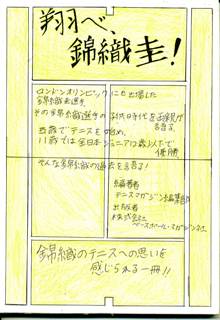 翔べ、
錦織圭!
ロンドンオリンピックにも出場した
錦織圭選手。
その錦織選手の
5歳でテニスを始め、
11歳では全日本ジュニア12歳以下で
優勝
そんな錦織の過去を語る!
編著者
テニスマガジン編集部
出版者
株式会社
ベースボール・マガジン社
錦織のテニスへの思いを
感じられる一冊!!